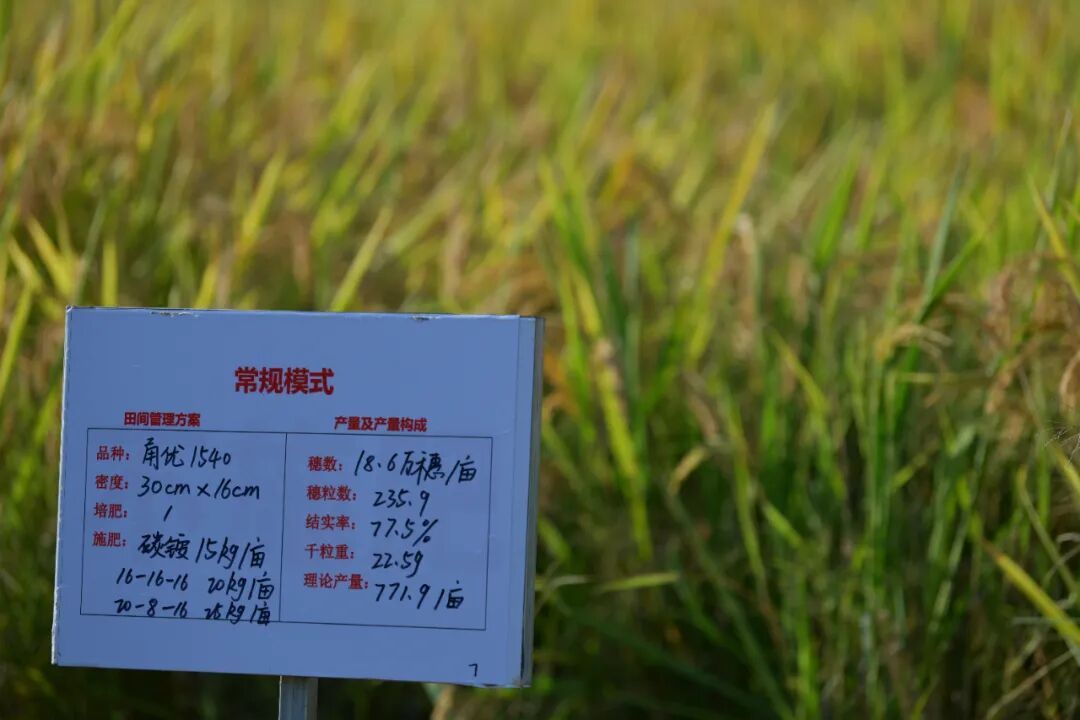 常规模式
田间管理方案
品种: 甬优1540
密度: 30cm×16cm
培肥: 1
施肥: 碳铵 15kg/亩
16-16-16 20kg/亩
20-8-16 25kg/亩
产量及产量构成
穗数: 18.6万穗/亩
穗粒数: 235.9
结实率: 77.5%
千粒重: 22.5g
理论产量: 771.9/亩
7